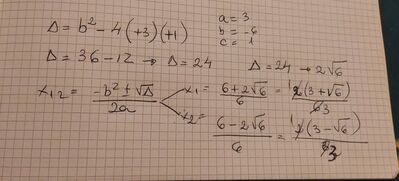 Δ = b² - 4(+3)(+1)
a = 3
b = -6
c = 1
Δ = 36 - 12 → Δ = 24
Δ = 24 → 2√6
x₁,₂ = (-b² ± √Δ) / 2a
x₁ = (6 + 2√6) / 6 = 2(3 + √6) / 6 3
x₂ = (6 - 2√6) / 6 = 2(3 - √6) / 6 3